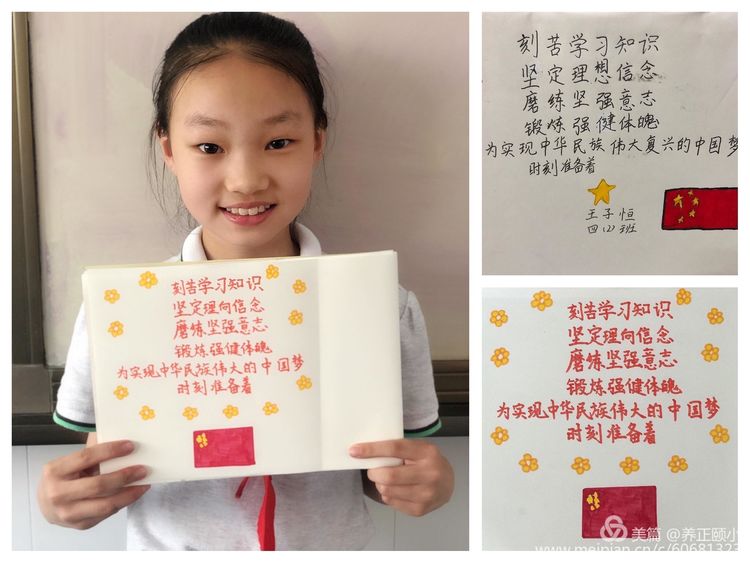 刻苦学习知识
坚定理向信念
磨练坚强意志
锻炼强健体魄
为实现中华民族伟大的中国梦
时刻准备着
刻苦学习知识
坚定理想信念
磨练坚强意志
锻炼强健体魄
为实现中华民族伟大复兴的中国梦
时刻准备着
王子恒
四(2)班
刻苦学习知识
坚定理向信念
磨练坚强意志
锻炼强健体魄
为实现中华民族伟大的中国梦
时刻准备着
美篇 @养正颐小
www.meipian.cn/c/60681323